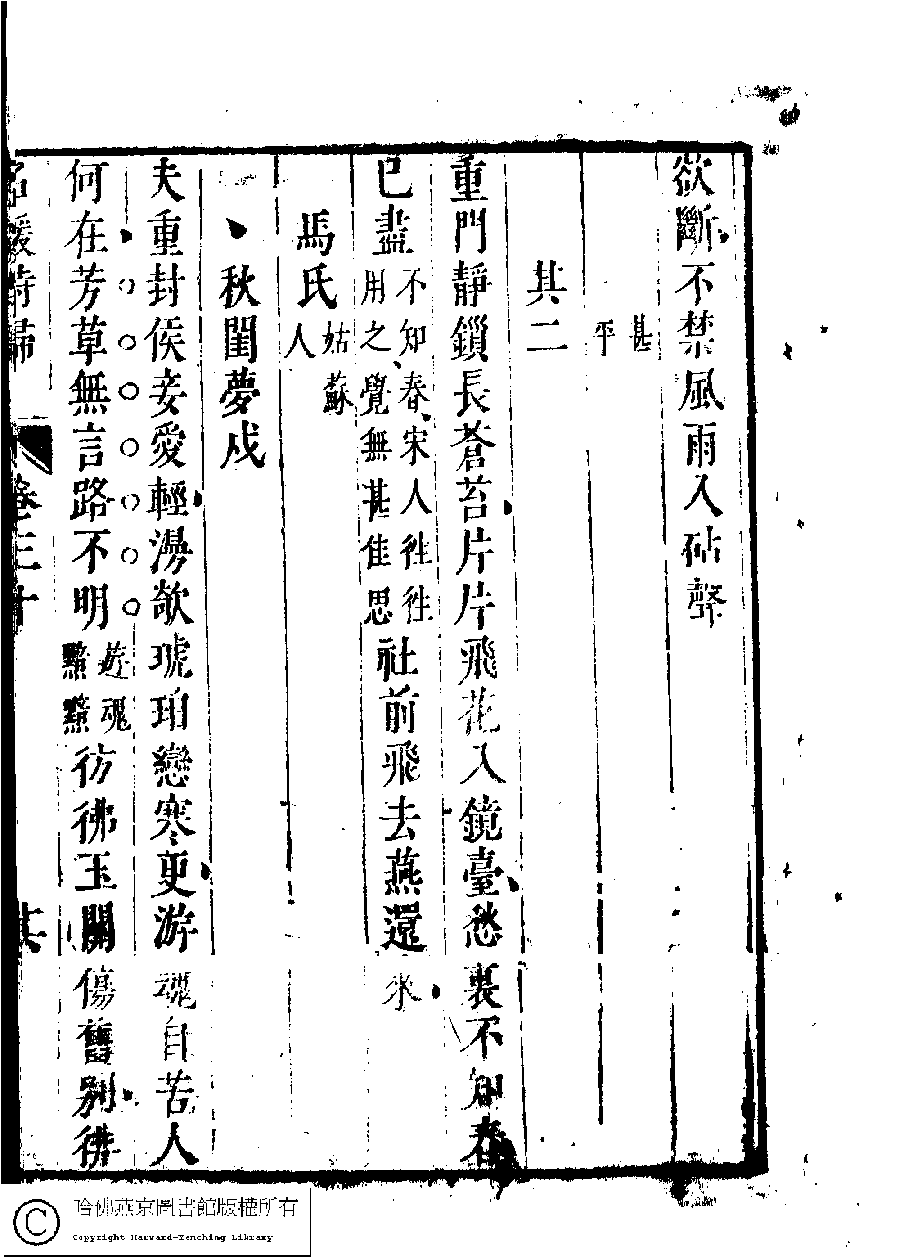 欲斷不禁風雨入砧聲
甚
平
其二
重門靜鎖長蒼苔片片飛花入鏡臺愁裏不知春
已盡不知春宋人徃徃用之覺無甚佳思社前飛去燕還來
馬氏姑蘇人
秋閨夢戍
夫重封侯妾愛輕漫欹琥珀戀寒更游魂自苦人
何在芳草無言路不明遊魂黯黯彷彿玉關傷舊別彿
名媛詩歸
卷三十
哈佛燕京圖書館版權所有
Copyright Harvard-Yenching Library